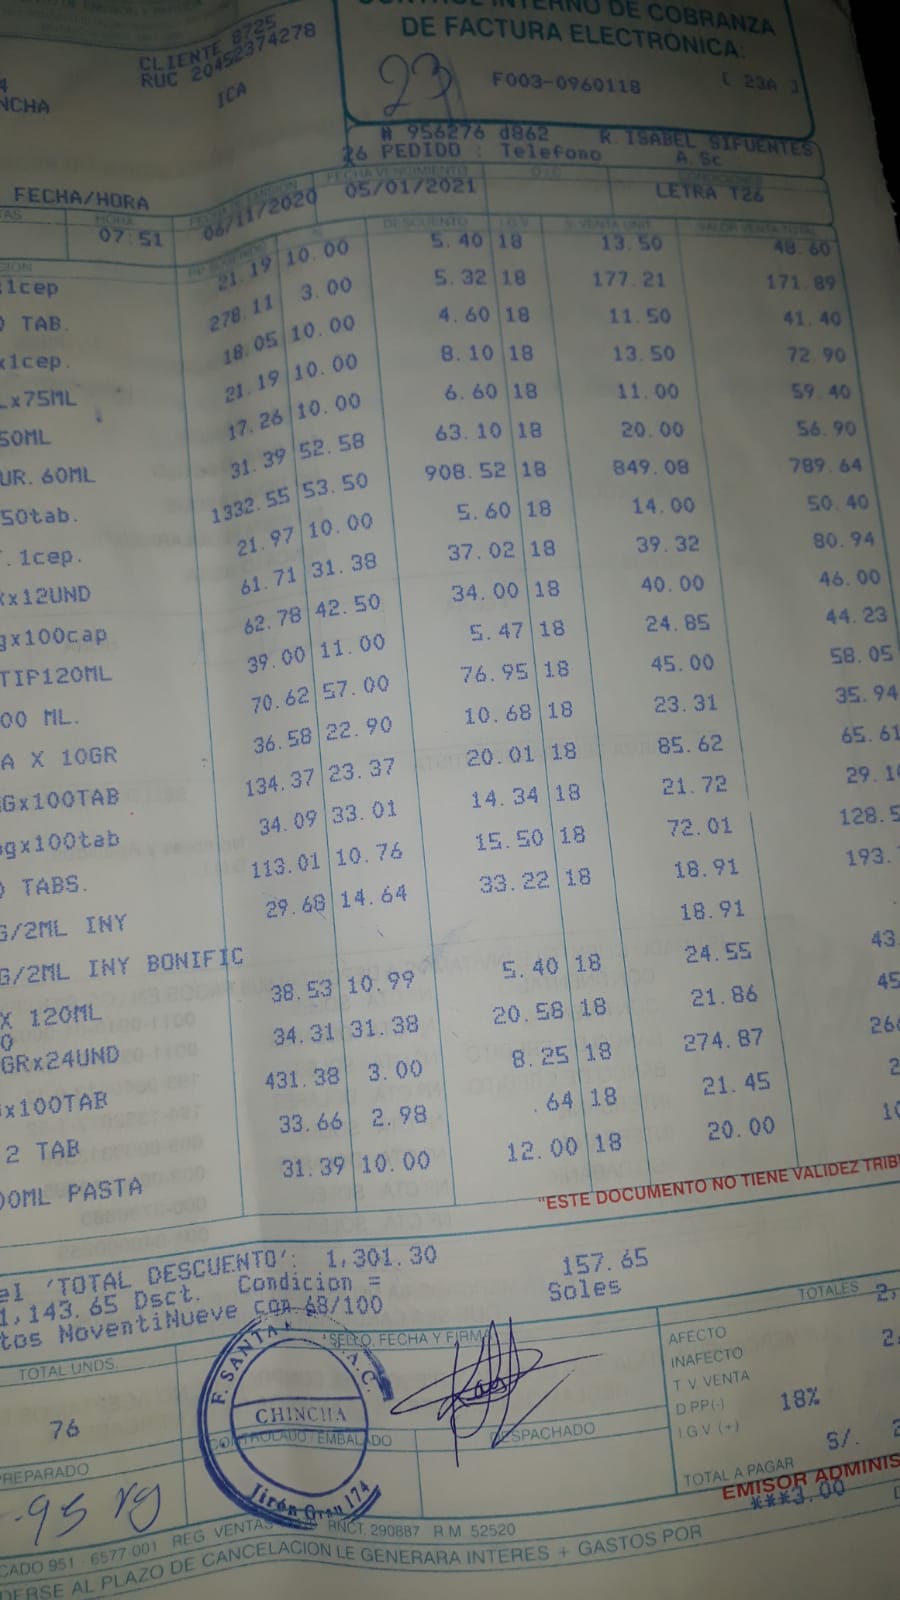 CONTROL INTERNO DE COBRANZA
DE FACTURA ELECTRONICA:
CLIENTE 8725
RUC 20452374278
ICA
NCHA
23
F003-0960118 [ 23A ]
# 956276 d862 R. ISABEL SIFUENTES
26 PEDIDO : Telefono A. Sc
FECHA/HORA
HORA
07:51
06/11/2020
FECHA VENCIMIENTO
05/01/2021
LETRA T26
DESCUENTO I.G.V V. VENTA UNIT. VALOR VENTA TOTAL
1cep 21.19 10.00 5.40 18 13.50 48.60
TAB. 278.11 3.00 5.32 18 177.21 171.89
x1cep. 18.05 10.00 4.60 18 11.50 41.40
x75ML 21.19 10.00 8.10 18 13.50 72.90
50ML 17.26 10.00 6.60 18 11.00 59.40
UR. 60ML 31.39 52.58 63.10 18 20.00 56.90
50tab. 1332.55 53.50 908.52 18 849.08 789.64
. 1cep. 21.97 10.00 5.60 18 14.00 50.40
x12UND 61.71 31.38 37.02 18 39.32 80.94
gx100cap 62.78 42.50 34.00 18 40.00 46.00
TIP120ML 39.00 11.00 5.47 18 24.85 44.23
00 ML. 70.62 57.00 76.95 18 45.00 58.05
A X 10GR 36.58 22.90 10.68 18 23.31 35.94
Gx100TAB 134.37 23.37 20.01 18 85.62 65.61
gx100tab 34.09 33.01 14.34 18 21.72 29.1
TABS. 113.01 10.76 15.50 18 72.01 128.5
G/2ML INY 29.68 14.64 33.22 18 18.91 193.
G/2ML INY BONIFIC 18.91
X 120ML 38.53 10.99 5.40 18 24.55 43.
0
GRx24UND 34.31 31.38 20.58 18 21.86 45
x100TAB 431.38 3.00 8.25 18 274.87 266
2 TAB 33.66 2.98 .64 18 21.45 2
00ML PASTA 31.39 10.00 12.00 18 20.00 10
"ESTE DOCUMENTO NO TIENE VALIDEZ TRIB
el 'TOTAL DESCUENTO': 1,301.30 157.65
1,143.65 Dsct. Condicion = Soles
tos NoventiNueve con 68/100
TOTALES 2,
TOTAL UNDS.
SELLO, FECHA Y FIRMA
AFECTO 2,
INAFECTO
T V VENTA
D PP(-) 18%
I.G.V (+) S/. 2
76
F. SANTA A.C.
CHINCHA
Jirón Grau 174
CONTROLADO / EMBALADO
DESPACHADO
PREPARADO
TOTAL A PAGAR
EMISOR ADMINIS
***3.00
-95
REG VENTAS RNCT. 290887 R M 52520
CADO 951 - 6577-001
DERSE AL PLAZO DE CANCELACION LE GENERARA INTERES + GASTOS POR